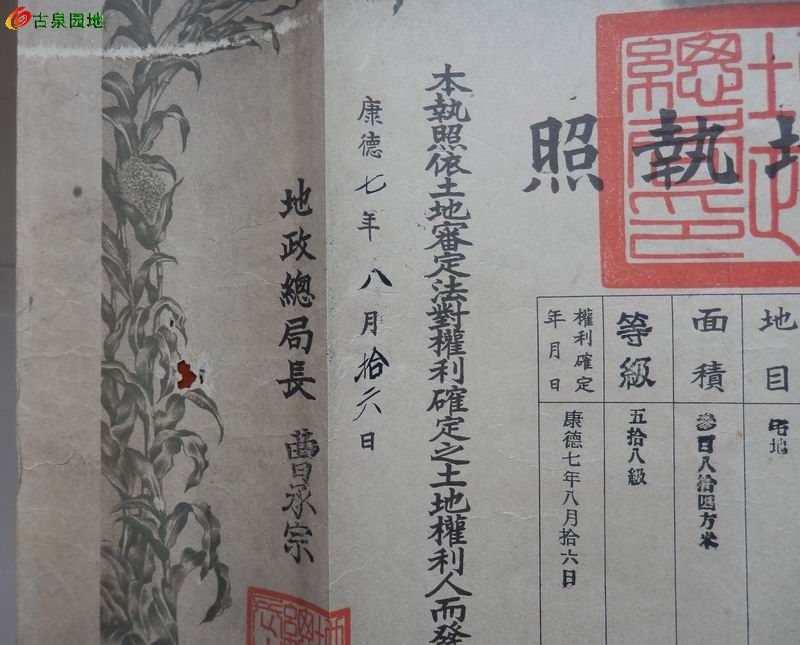 古泉园地
執照
地目
宅地
面積
參百八拾四方米
等級
五拾八級
權利確定年月日
康德七年八月拾六日
本執照依土地審定法對權利確定之土地權利人而發
康德七年八月拾六日
地政總局長 曹承宗